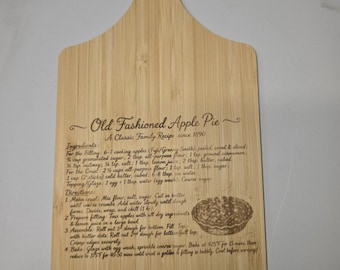 Old Fashioned Apple Pie
A Classic Family Recipe since 1890
Ingredients:
For the Filling: 6-7 cooking apples (Fuji/Granny Smith) peeled, cored & sliced;
¾ cup granulated sugar; 2 tbsp all-purpose flour; 1 tsp ground cinnamon;
¼ tsp nutmeg; ¼ tsp salt; 1 tbsp lemon juice; 2 tbsp butter, cubed
For the Crust: 2 ½ cups all-purpose flour; 1 tsp salt;
1 cup (2 sticks) cold butter, cubed; 6-8 tbsp ice water
Topping/Glaze: 1 egg + 1 tbsp water (egg wash); Coarse sugar
Directions:
1. Make crust: Mix flour, salt, sugar. Cut in butter
until coarse crumbs. Add water slowly until dough
forms. Divide, wrap, and chill
2. Prepare filling: Toss apples with all dry ingredients
& lemon juice in a large bowl.
3. Assemble: Roll out 1st dough for bottom. Fill. Top
with butter dots. Roll out 2nd dough for top.
Crimp edges securely.
4. Bake: Glaze with egg wash, sprinkle coarse sugar. Bake at 425°F 15 mins, then
reduce to 375°F for 40-50 mins until crust is golden & filling is bubbly. Cool before serving!